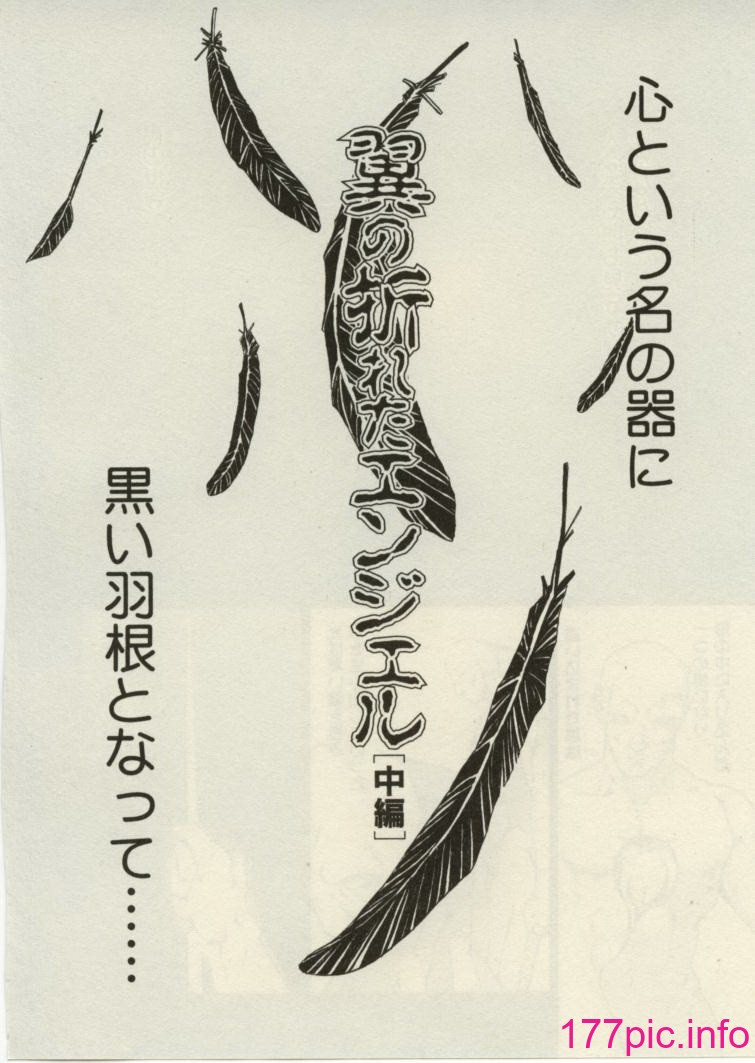 心という名の器に
翼の折れたエンジェル
[中編]
黒い羽根となって……
177pic.info